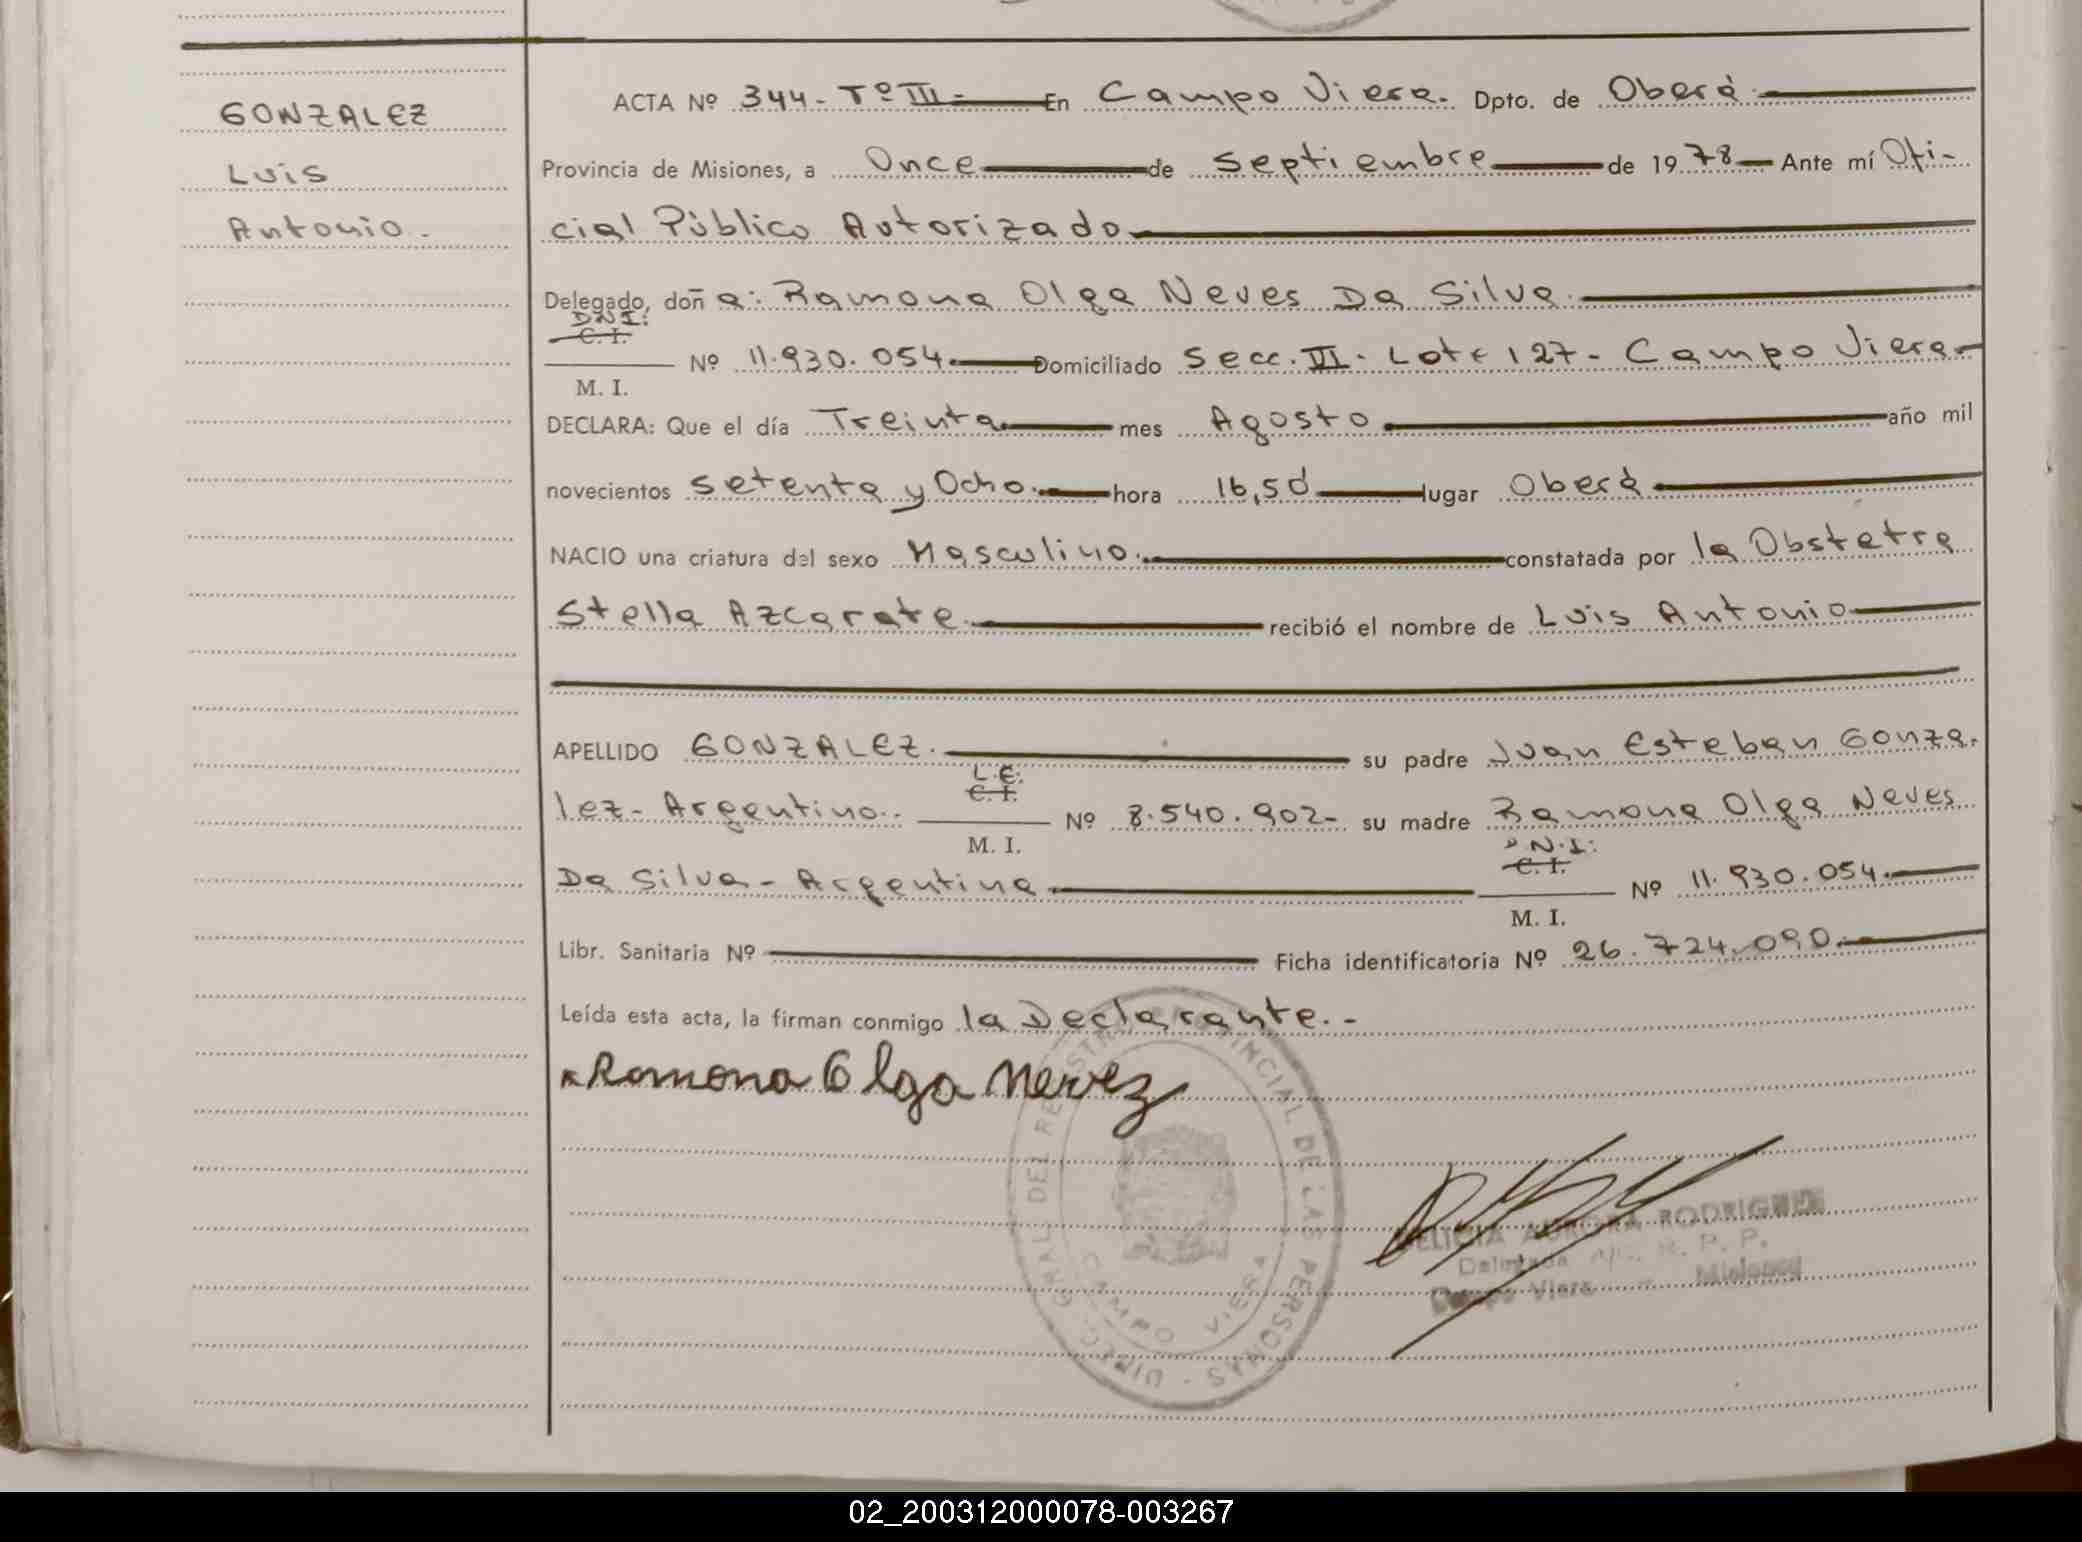 GONZALEZ
Luis
Antonio.
ACTA Nº 344- Tº III- En Campo Viera. Dpto. de Oberá
Provincia de Misiones, a Once de Septiembre de 1978 Ante mí Ofi-
cial Público Autorizado
Delegado, doña: Ramona Olga Neves Da Silva.
D.N.I:
C. I.
Nº 11.930.054. Domiciliado Secc. III. Lote 127- Campo Viera-
M. I.
DECLARA: Que el día Treinta mes Agosto año mil
novecientos setenta y Ocho. hora 16,50 lugar Oberá
NACIO una criatura del sexo Masculino. constatada por la Obstetra
Stella Azcarate. recibió el nombre de Luis Antonio
APELLIDO GONZALEZ. su padre Juan Esteban Gonza-
L.E:
C. I.
lez- Argentino. Nº 8.540.902- su madre Ramona Olga Neves
M. I.
D.N.I:
C. I.
Da Silva- Argentina Nº 11.930.054.
M. I.
Libr. Sanitaria Nº Ficha identificatoria Nº 26.724.090.
Leída esta acta, la firman conmigo la Declarante.-
Ramona Olga Nervez
DIREC. GRAL DEL REGISTRO PROVINCIAL DE LAS PERSONAS
CAMPO VIERA
AURORA RODRIGUEZ
R. P. P.
Campo Viera - Misiones
02_200312000078-003267